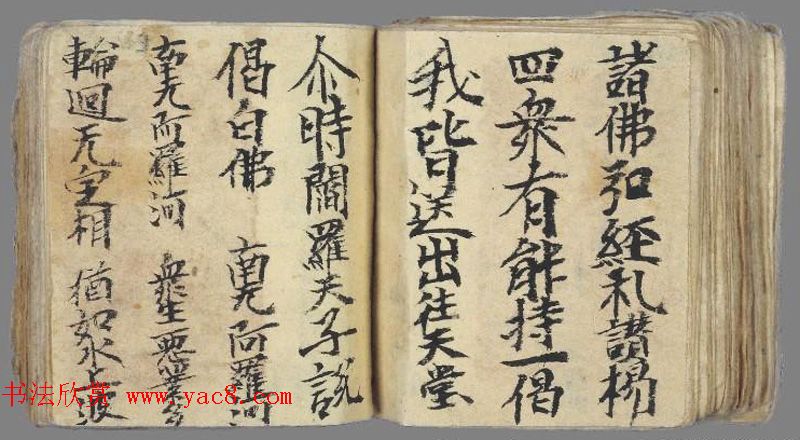 諸佛弘經礼讃楊
四衆有能持一偈
我皆送出往天堂
尒時閻羅天子說
偈白佛 南无阿羅河
南无阿羅河 衆生惡業多
輪迴无定相 猶如水上波
书法欣赏 www.yac8.com